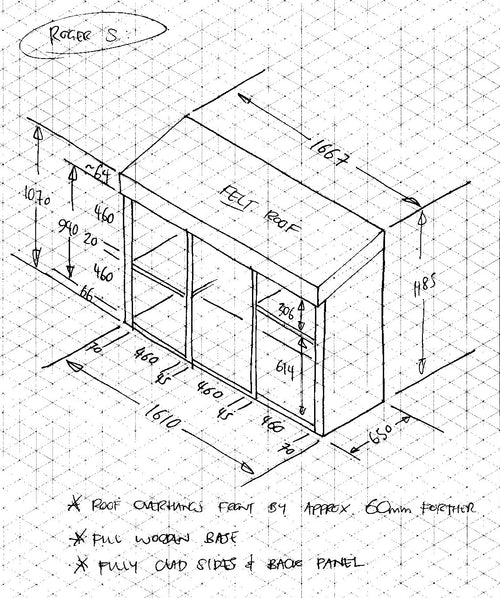 ROGER S.
1667
~64
1070
460
FELT ROOF
990
20
460
1185
306
66
614
70
460
45
460
45
460
70
1610
650
* ROOF OVERHANGS FRONT BY APPROX. 60mm FURTHER
* FULL WOODEN BASE
* FULLY CLAD SIDES & BACK PANEL